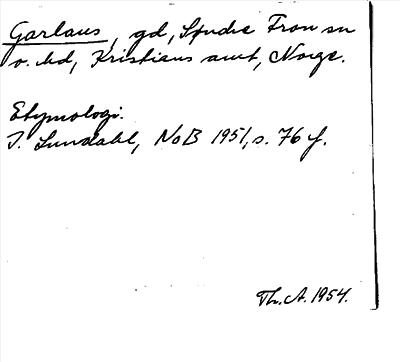 Garlaus, gd, Söndre Fron sn
o. hd, Kristians amt, Norge.
Etymologi.
I. Lundahl, NoB 1951, s. 76 f.
Th. A. 1954.